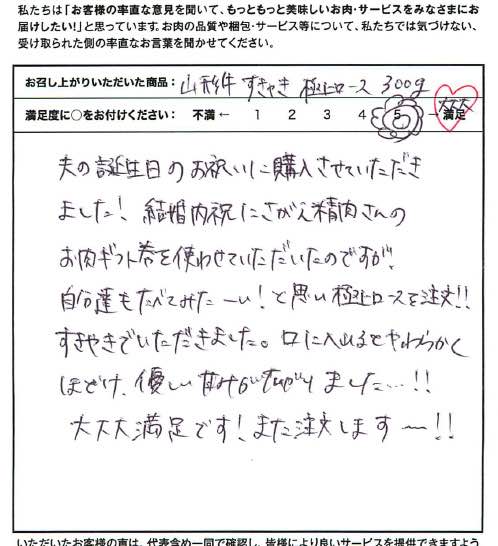 私たちは「お客様の率直な意見を聞いて、もっともっと美味しいお肉・サービスをみなさまにお
届けしたい!」と思っています。お肉の品質や梱包・サービス等について、私たちでは気づけない、
受け取られた側の率直なお言葉を聞かせてください。
お召し上がりいただいた商品: 山形牛 すきやき 極上ロース 300g
満足度に○をお付けください: 不満 ← 1 2 3 4 5 → 大大大満足
夫の誕生日のお祝いに購入させていただき
ました! 結婚内祝にさがえ精肉さんの
お肉ギフト券を使わせていただいたのですが、
自分達もたべてみたーい!と思い極上ロースを注文!!
すきやきでいただきました。口に入れるとやわらかく
ほどけ、優しい甘みが広がりました…!!
大大大満足です!また注文します〜!!
いただいたお客様の声は、代表含め一同で確認し、皆様により良いサービスを提供できますよう